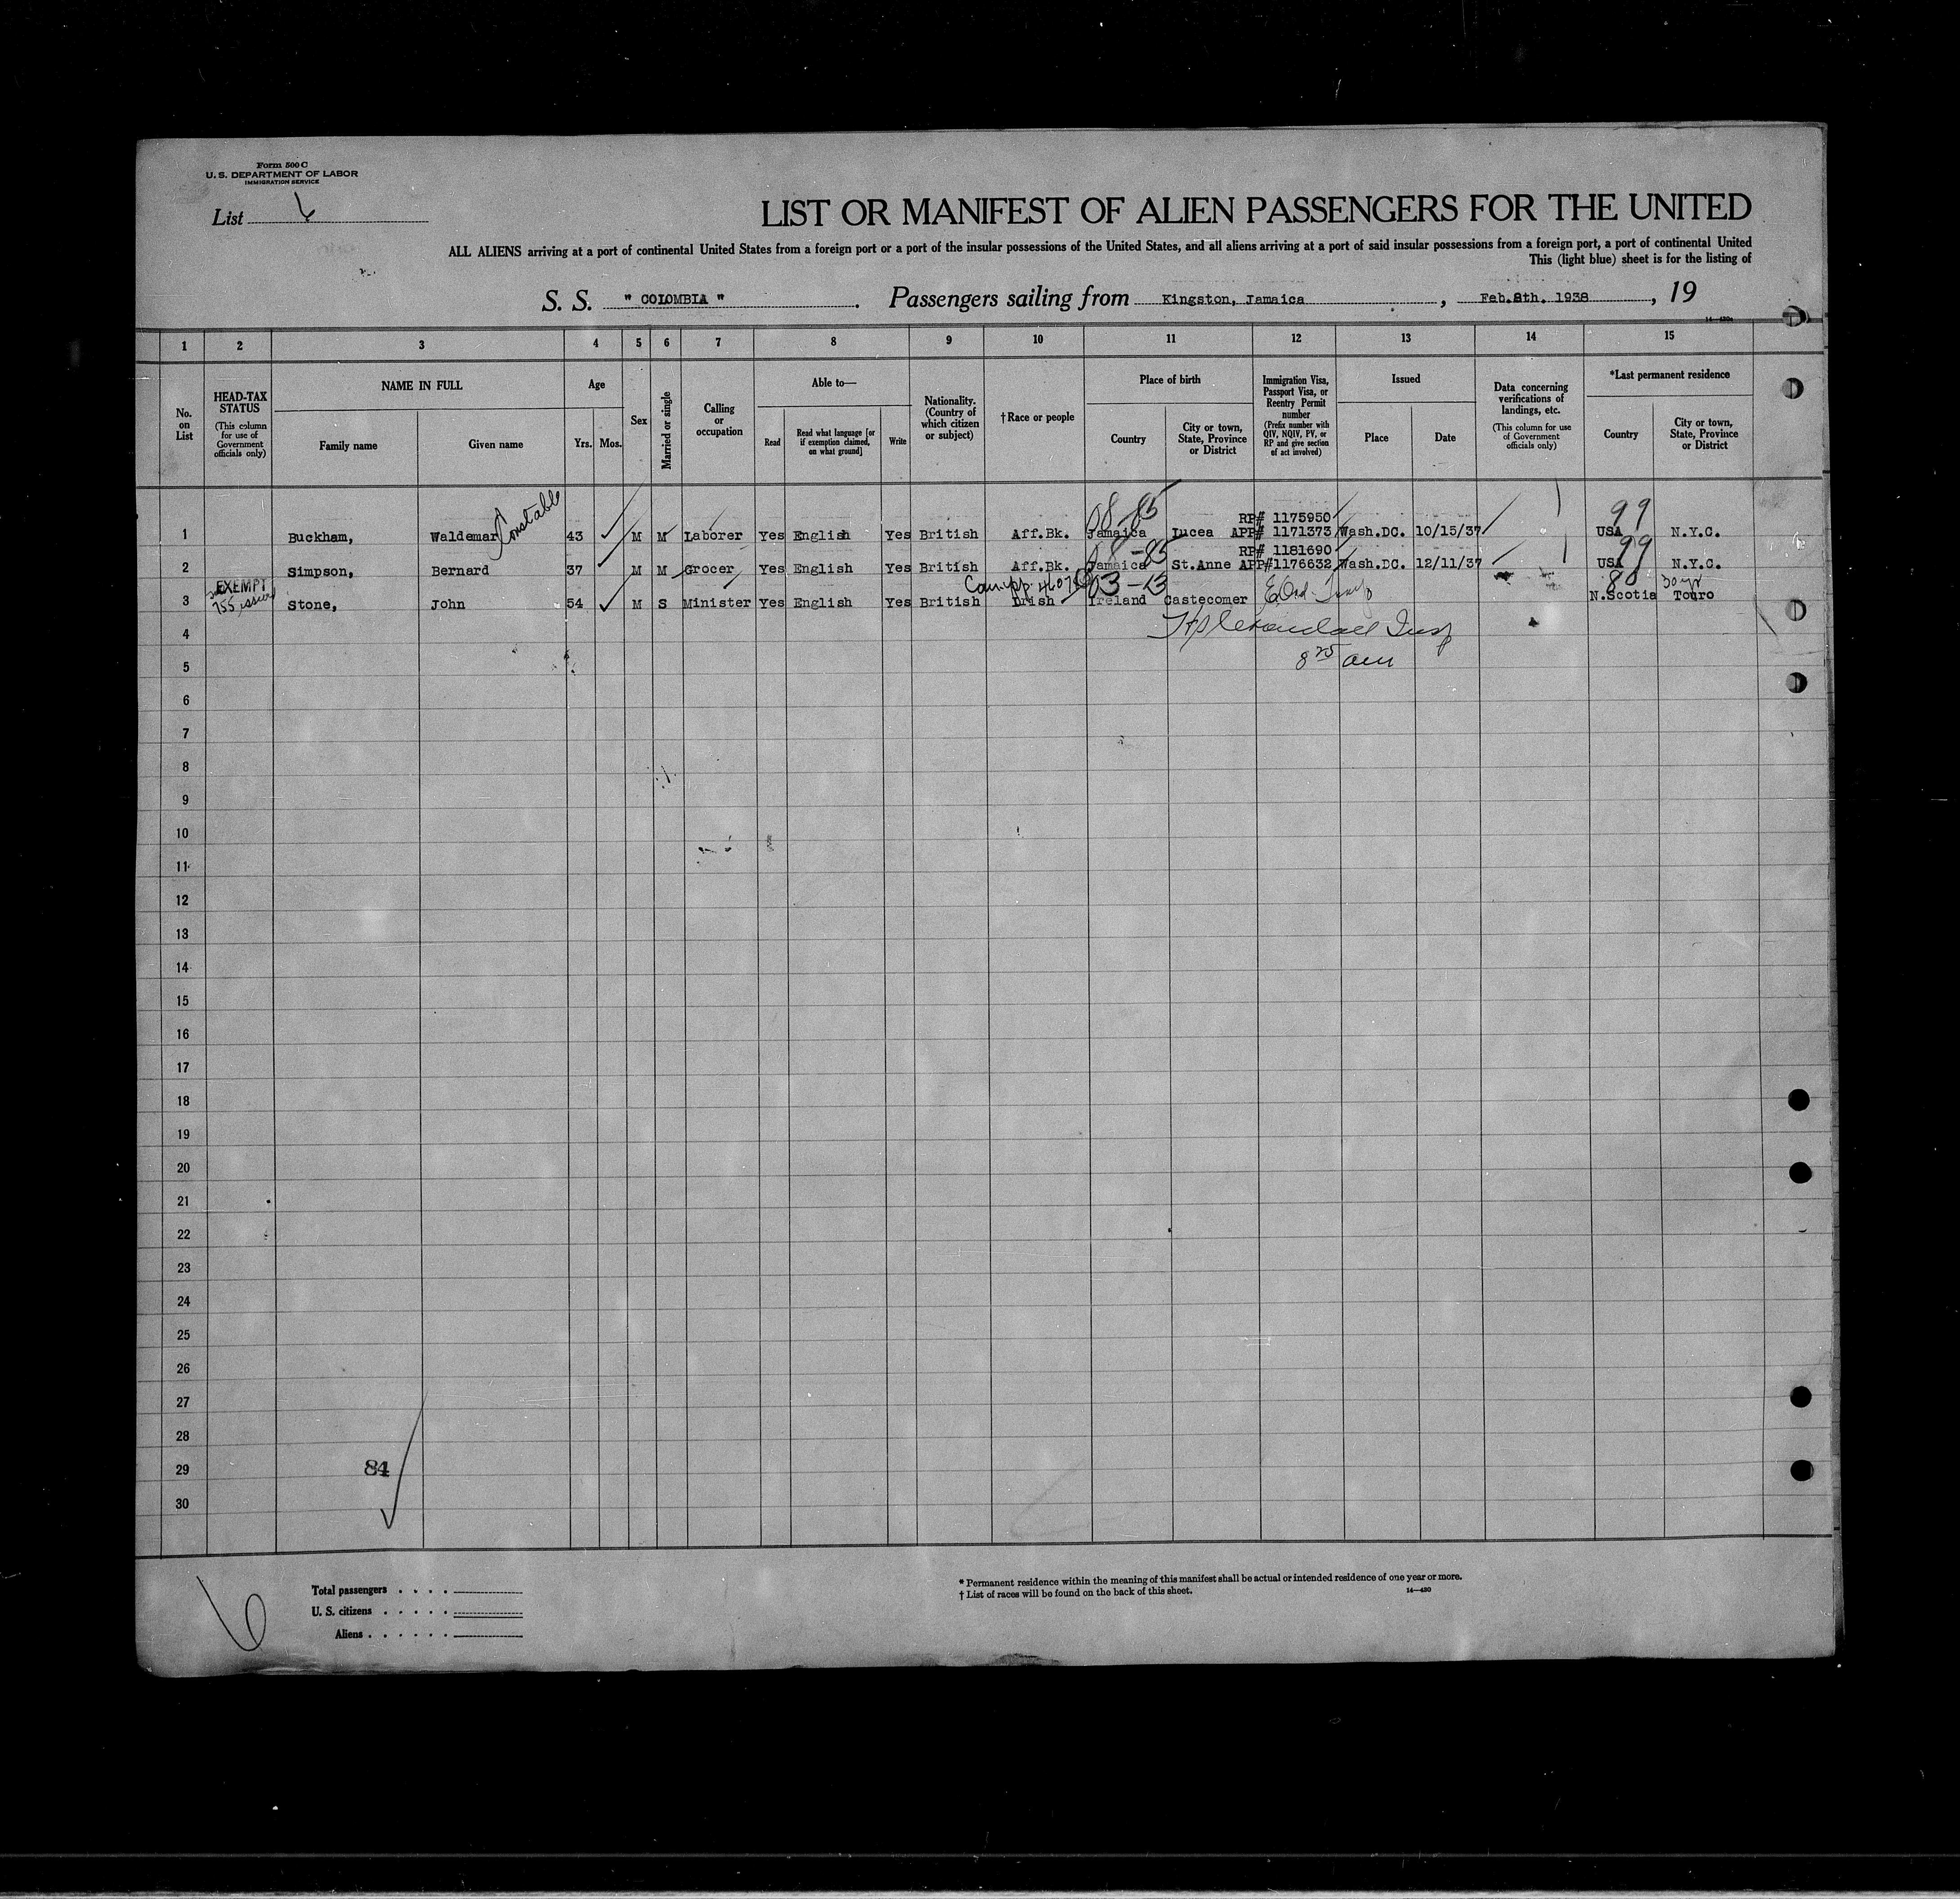 Form 500 C
U. S. DEPARTMENT OF LABOR
IMMIGRATION SERVICE
List 6
LIST OR MANIFEST OF ALIEN PASSENGERS FOR THE UNITED
ALL ALIENS arriving at a port of continental United States from a foreign port or a port of the insular possessions of the United States, and all aliens arriving at a port of said insular possessions from a foreign port, a port of continental United
This (light blue) sheet is for the listing of
S. S. " COLOMBIA ". Passengers sailing from Kingston, Jamaica, Feb.8th. 1938, 19
14—430a
1 2 3 4 5 6 7 8 9 10 11 12 13 14 15
No. on List
HEAD-TAX STATUS
(This column for use of Government officials only)
NAME IN FULL
Family name Given name
Age
Yrs. Mos.
Sex
Married or single
Calling or occupation
Able to—
Read
Read what language [or if exemption claimed, on what ground]
Write
Nationality. (Country of which citizen or subject)
†Race or people
Place of birth
Country
City or town, State, Province or District
Immigration Visa, Passport Visa, or Reentry Permit number
(Prefix number with QIV, NQIV, PV, or RP and give section of act involved)
Issued
Place Date
Data concerning verifications of landings, etc.
(This column for use of Government officials only)
*Last permanent residence
Country
City or town, State, Province or District
Constable
08-85 RP# 1175950 99
1 Buckham, Waldemar 43 M M Laborer Yes English Yes British Aff.Bk. Jamaica Lucea APP# 1171373 Wash.DC. 10/15/37 USA N.Y.C.
08-85 RP# 1181690 99
2 Simpson, Bernard 37 M M Grocer Yes English Yes British Aff.Bk. Jamaica St.Anne APP#1176632 Wash.DC. 12/11/37 USA N.Y.C.
EXEMPT 03-13 80 30 yr
755 issued
3 Stone, John 54 M S Minister Yes English Yes British Irish Ireland Castecomer N.Scotia Touro
4
5 8 25 am
6
7
8
9
10
11
12
13
14
15
16
17
18
19
20
21
22
23
24
25
26
27
28
29 84
30
6
Total passengers . . . .
U. S. citizens . . . . .
Aliens . . . . . .
* Permanent residence within the meaning of this manifest shall be actual or intended residence of one year or more.
† List of races will be found on the back of this sheet.
14—430